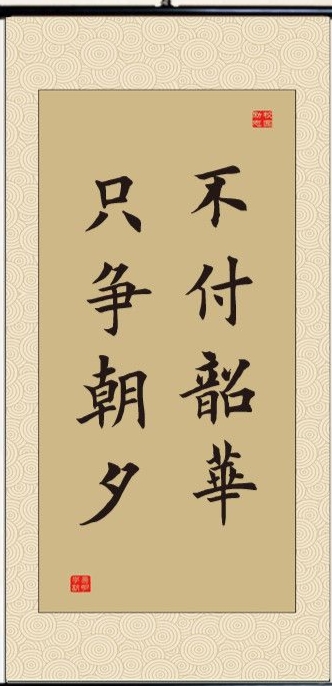 不付韶華
只争朝夕